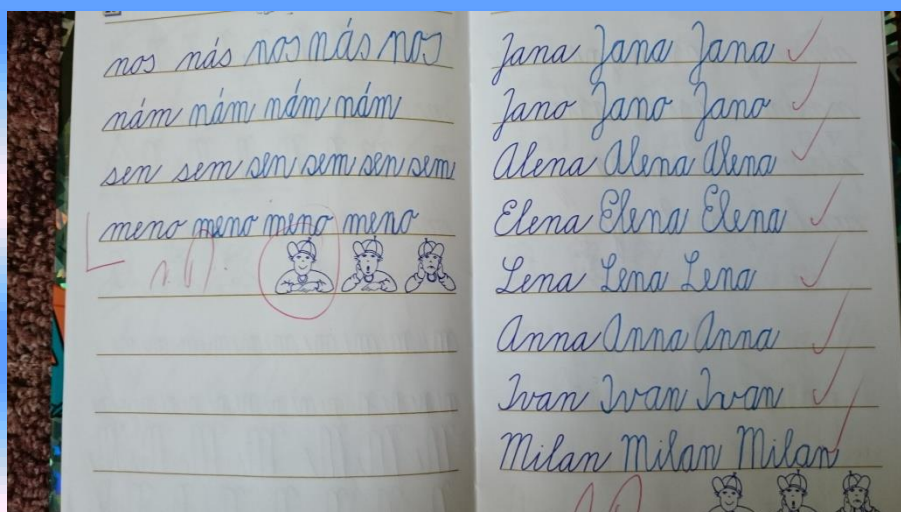 nos nás nos nás nos
nám nám nám nám
sen sem sen sem sen sem
meno meno meno meno
Jana Jana Jana
Jano Jano Jano
Alena Alena Alena
Elena Elena Elena
Lena Lena Lena
Anna Anna Anna
Ivan Ivan Ivan
Milan Milan Milan